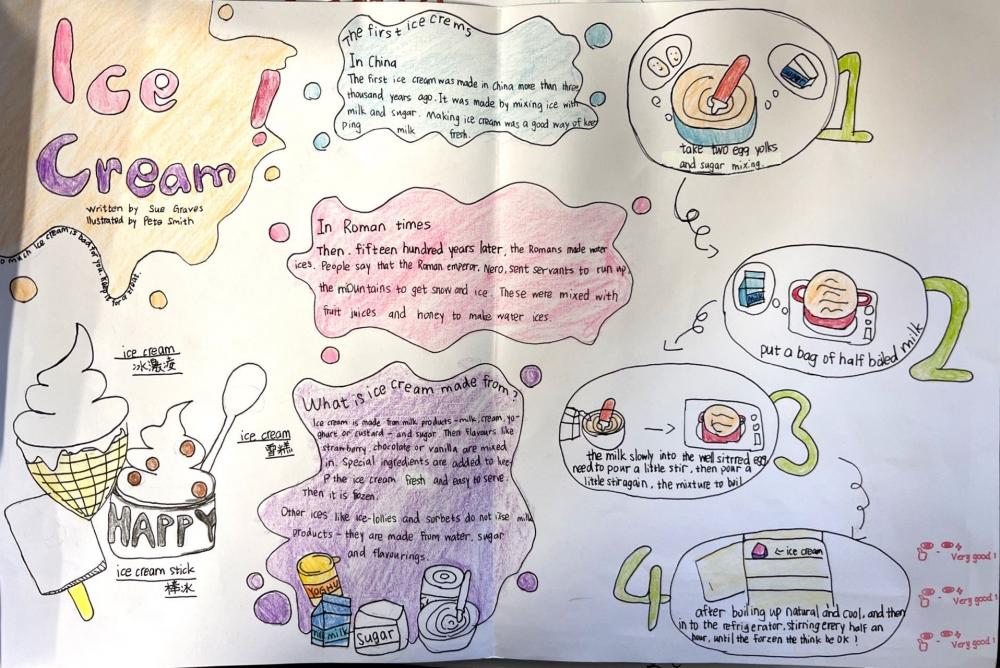 Ice
Cream!
written by Sue Graves
Illustrated by Pete Smith
much ice cream is bad for you. Keep it for a treat.
ice cream
ice cream
雪糕
HAPPY
ice cream stick
棒冰
The first ice crems
In China
The first ice cream was made in China more than three
thousand years ago. It was made by mixing ice with
milk and sugar. Making ice cream was a good way of kee
ping milk fresh.
In Roman times
Then. fifteen hundred years later, the Romans made water
ices. People say that the Roman emperor, Nero, sent servants to run up
the mountains to get snow and ice. These were mixed with
fruit juices and honey to make water ices.
What is ice cream made from?
Ice cream is made from milk products - milk, cream, yo-
ghurt or custard - and sugar. Then flavours like
strawberry, chocolate or vanilla are mixed
in. Special ingredients are added to kee
p the ice cream fresh and easy to serve.
Then it is frozen.
Other ices like ice-lollies and sorbets do not use milk
products - they are made from water, sugar
and flavourings.
YOGHU
milk
Sugar
1
take two egg yolks
and sugar mixing.
2
milk
put a bag of half boiled milk
3
the milk slowly into the well stirred egg
need to pour a little stir, then pour a
little stir again, the mixture to boil
4
← ice cream
after boiling up natural and cool, and then
in to the refrigerator, stirring every half an
hour, until the forzen the think be OK !
Very good !
Very good !
Very good !